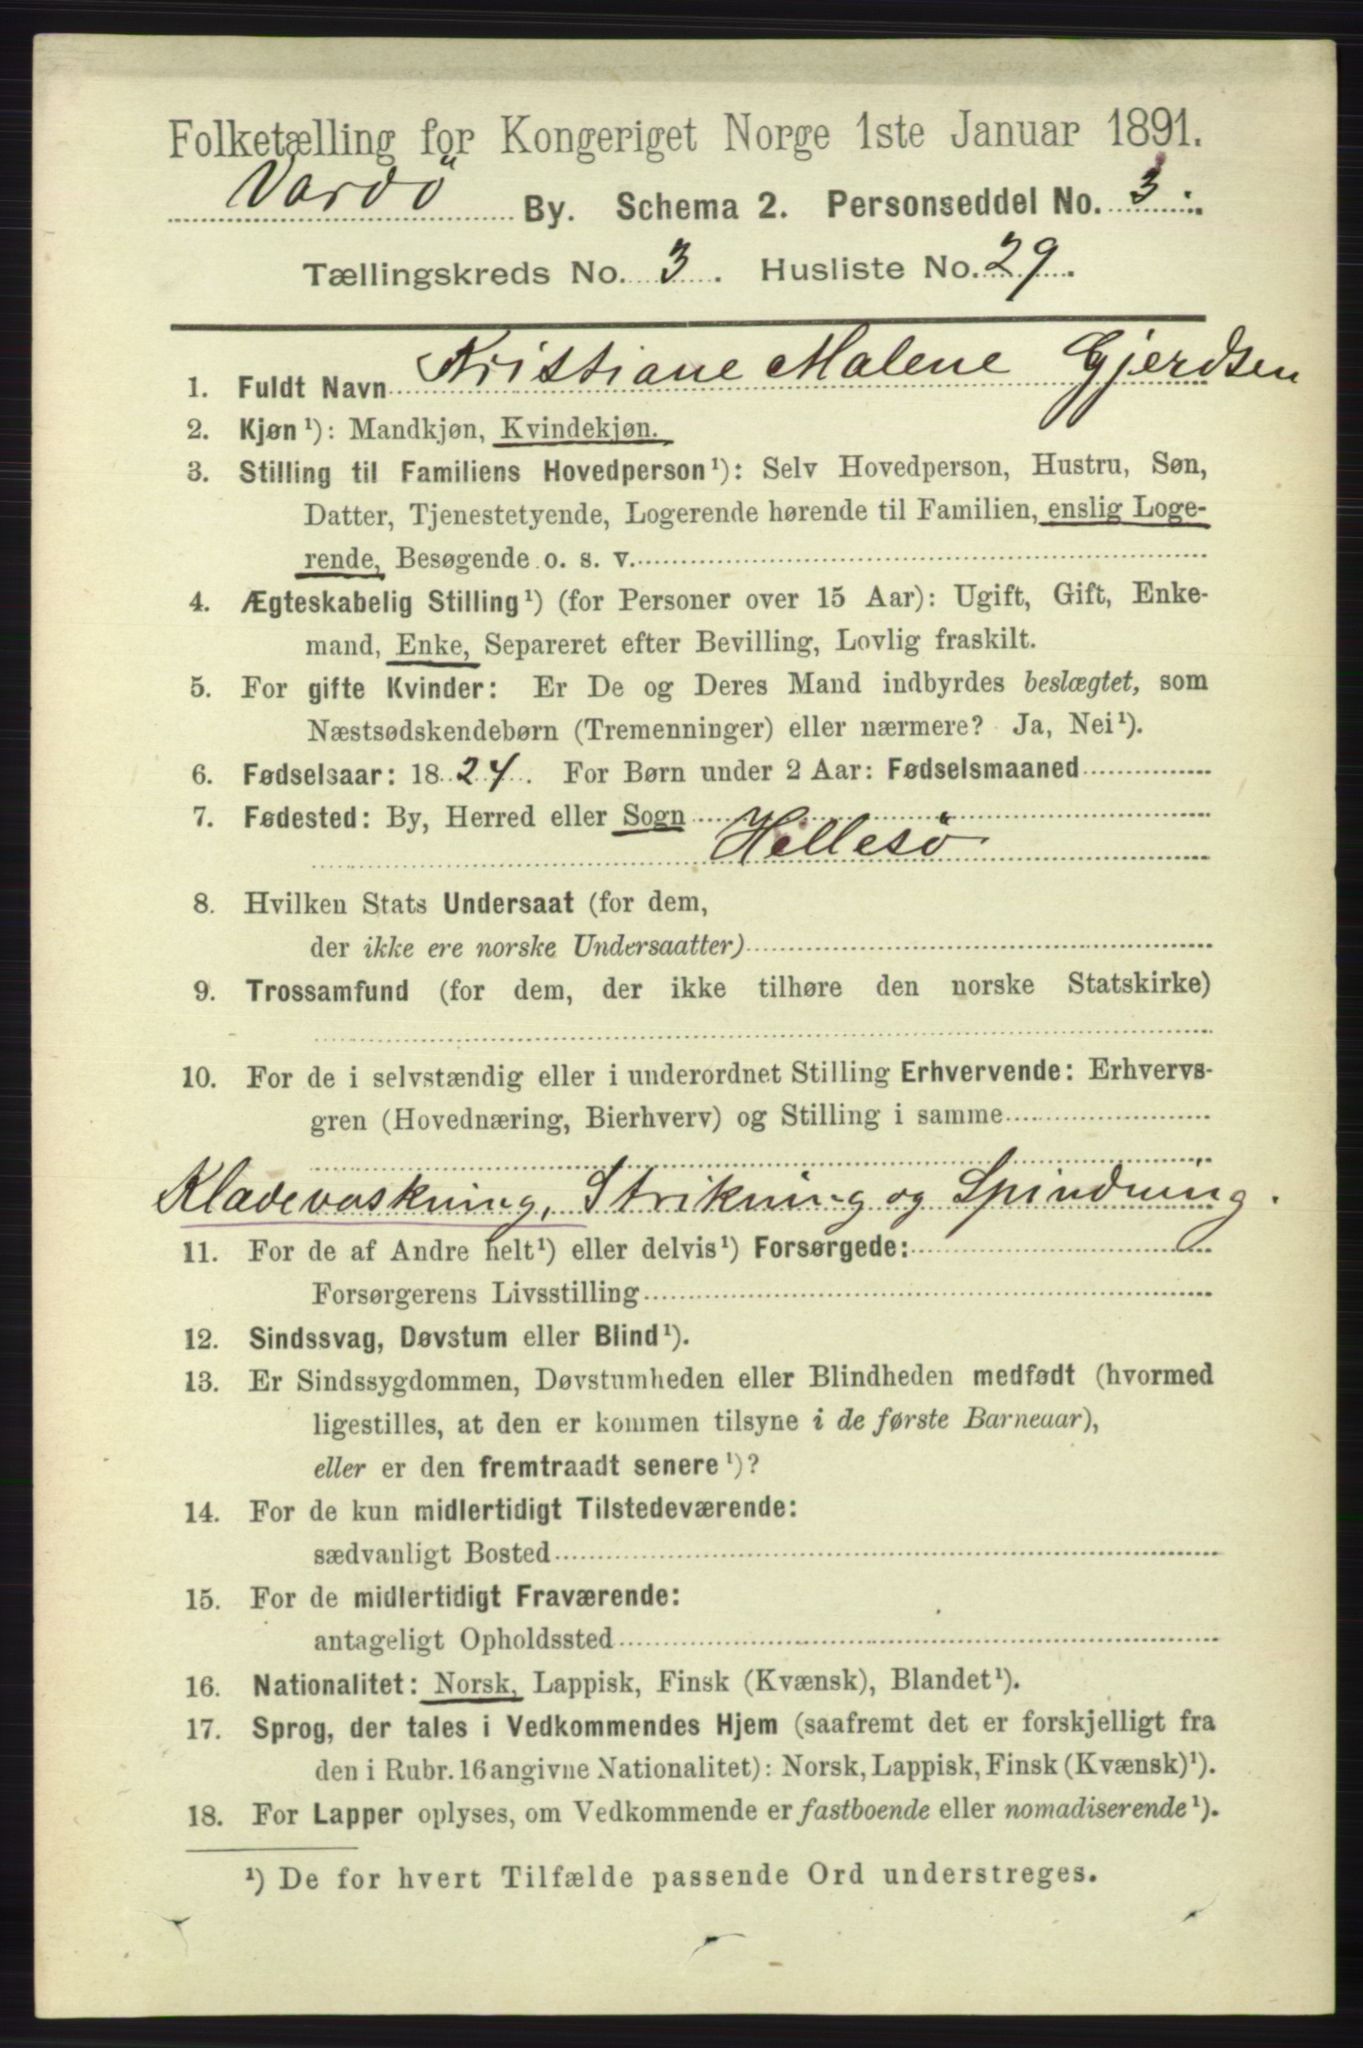 Folketælling for Kongeriget Norge 1ste Januar 1891.
Vardö By. Schema 2. Personseddel No. 3.
Tællingskreds No. 3. Husliste No. 29.
1. Fuldt Navn Kristiane Malene Gjerdsen
2. Kjøn¹): Mandkjøn, Kvindekjøn.
3. Stilling til Familiens Hovedperson¹): Selv Hovedperson, Hustru, Søn,
Datter, Tjenestetyende, Logerende hørende til Familien, enslig Loge-
rende, Besøgende o. s. v.
4. Ægteskabelig Stilling¹) (for Personer over 15 Aar): Ugift, Gift, Enke-
mand, Enke, Separeret efter Bevilling, Lovlig fraskilt.
5. For gifte Kvinder: Er De og Deres Mand indbyrdes beslægtet, som
Næstsødskendebørn (Tremenninger) eller nærmere? Ja, Nei¹).
6. Fødselsaar: 1824. For Børn under 2 Aar: Fødselsmaaned
7. Fødested: By, Herred eller Sogn
Hillesö
8. Hvilken Stats Undersaat (for dem,
der ikke ere norske Undersaatter)
9. Trossamfund (for dem, der ikke tilhøre den norske Statskirke)
10. For de i selvstændig eller i underordnet Stilling Erhvervende: Erhvervs-
gren (Hovednæring, Bierhverv) og Stilling i samme
Klædevaskning, Strikning og Spinduing.
11. For de af Andre helt¹) eller delvis¹) Forsørgede:
Forsørgerens Livsstilling
12. Sindssvag, Døvstum eller Blind¹).
13. Er Sindssygdommen, Døvstumheden eller Blindheden medfødt (hvormed
ligestilles, at den er kommen tilsyne i de første Barneaar),
eller er den fremtraadt senere¹)?
14. For de kun midlertidigt Tilstedeværende:
sædvanligt Bosted
15. For de midlertidigt Fraværende:
antageligt Opholdssted
16. Nationalitet: Norsk, Lappisk, Finsk (Kvænsk), Blandet¹).
17. Sprog, der tales i Vedkommendes Hjem (saafremt det er forskjelligt fra
den i Rubr. 16 angivne Nationalitet): Norsk, Lappisk, Finsk (Kvænsk)¹).
18. For Lapper oplyses, om Vedkommende er fastboende eller nomadiserende¹).
¹) De for hvert Tilfælde passende Ord understreges.